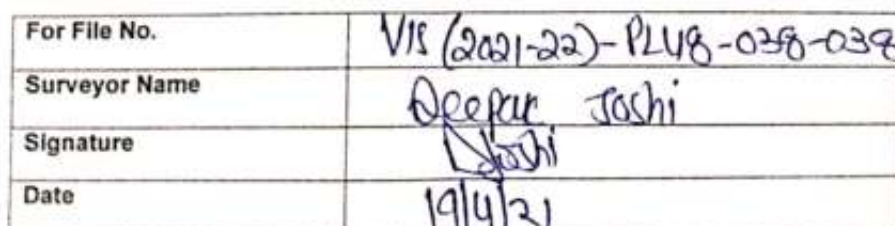 For File No. VIS (2021-22)-PL48-038-038
Surveyor Name Deepak Joshi
Signature DJoshi
Date 19/4/21